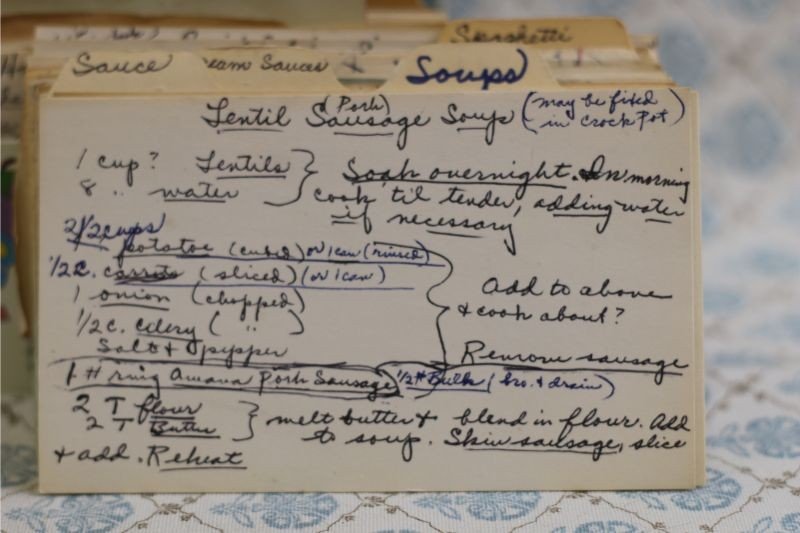 Spaghetti
Sauce
eam Sauces
Soups
Lentil (Pork) Sausage Soup (may be fixed in crock pot)
1 cup? Lentils } Soak overnight. In morning
8 " water cook 'til tender, adding water
if necessary
2 1/2 cups
potatoe (cubed) or 1 can (rinsed)
1/2 c. carrots (sliced) (or 1 can)
1 onion (chopped)
1/2 c. celery ( " )
Salt & pepper
Add to above
& cook about?
Remove sausage
1 # ring Amana Pork Sausage 1/2 # Bulk (bro. & drain)
2 T flour
2 T Butter } melt butter & blend in flour. Add
to soup. Skin sausage, slice
& add. Reheat